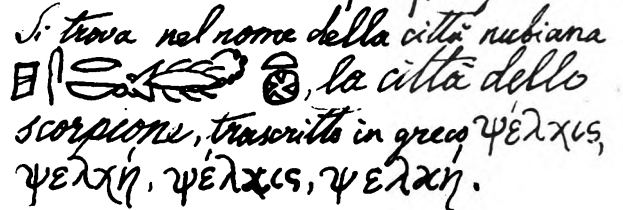 Si trova nel nome della città nubiana
, la città dello
scorpione, trascritto in greco ψέλχις,
ψελχή, ψέλκις, ψελκή.